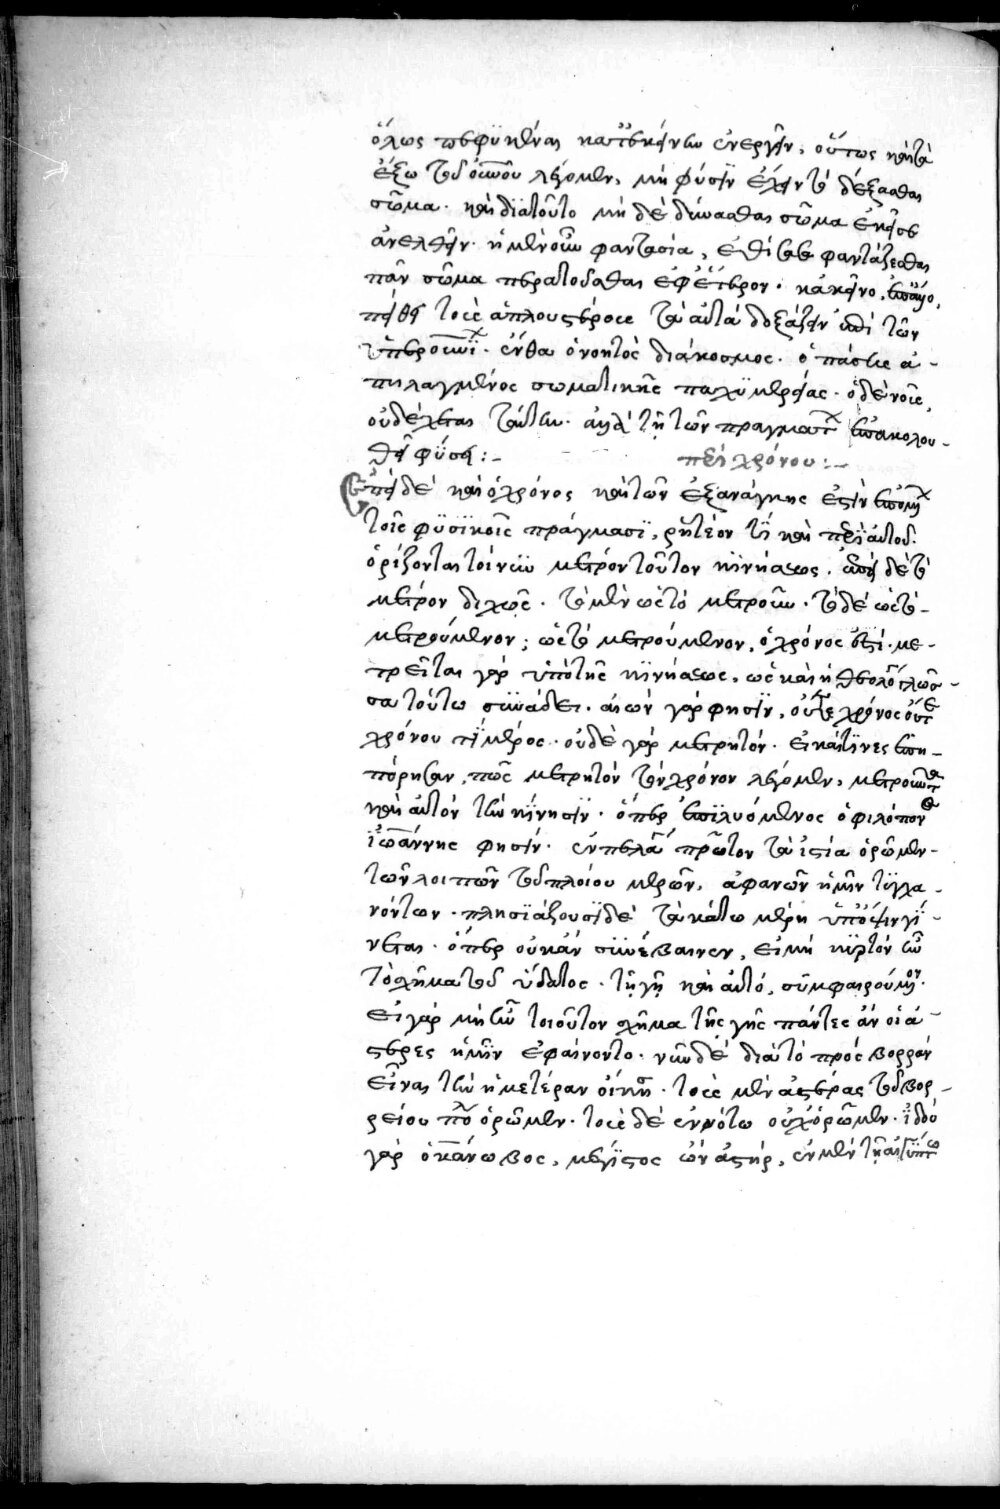 ὅλως πεφυκέναι κατὰ κενὸν ἐνεργεῖν, οὕτως καὶ τὰ
ἔξω τοῦ οὐρανοῦ λέγομεν, μὴ φύσιν ἔχειν τὸ δέξασθαι
σῶμα. καὶ διατοῦτο μὴ δὲ δύνασθαι σῶμα ἐκεῖσε
ἀνελθεῖν. ἡ μὲν οὖν φαντασία, ἐθίσασα φαντάζεσθαι
πᾶν σῶμα περατοῦσθαι ἐφ' ἕτερον. κἀκεῖνο,
πείθει τοὺς ἁπλουστέρους τὰ αὐτὰ δοξάζειν ἐπὶ τῶν
ὑπερουρανίων. ἔνθα ὁ νοητὸς διάκοσμος. ὁ πάσης ἀ-
πηλαγμένος σωματικῆς παχυμερείας. ὁ δὲ νοῦς,
οὐδέχεται ταύτην. ἀλλὰ τῆ τῶν πραγμάτων ἐπακολου-
θεῖ φύσει:-
περὶ χρόνου:-
Ἐπεὶ δὲ καὶ ὁ χρόνος καὶ τῶν ἐξανάγκης ἐστὶν ἑπομένων
τοῖς φυσικοῖς πράγμασι, ῥητέον τὶ καὶ περὶ αὐτοῦ.
ὁρίζονται τοίνυν μέτρον τοῦτον κινήσεως. ἐπεὶ δὲ τὸ
μέτρον διχῶς. τὸ μὲν ὡς τὸ μετροῦν. τὸ δὲ ὡς τὸ
μετρούμενον; ὡς τὸ μετρούμενον, ὁ χρόνος ἐστί. με-
τρεῖται γὰρ ὑπὸ τῆς κινήσεως, ὡς καὶ ἡ θεολόγος γλῶσ-
σα τούτω συνάδει. αἰὼν γὰρ φησὶν, οὔτε χρόνος οὔτε
χρόνου τι μέρος. οὐδὲ γὰρ μετρητόν. εἰ καί τινες ἐπη-
πόρησαν, πῶς μετρητὸν τὸν χρόνον λέγομεν, μετροῦντα
καὶ αὐτὸν τὴν κίνησιν. ὅπερ ἐπιλυόμενος ὁ φιλόπονος
ἰωάννης φησίν. ἐν πελάγει πρῶτον τὰ ἱστία ὁρῶμεν
τῶν λοιπῶν τοῦ πλοίου μερῶν, ἀφανῶν ἡμῖν τυγχα-
νόντων. πλησιάζουσι δὲ τὰ κάτω μέρη ὑπόψιν γί-
νεται. ὅπερ οὐκ ἂν συνέβαινεν, εἰ μὴ κυρτὸν ἦν
τὸ σχῆμα τοῦ ὕδατος. τῆ γῆ καὶ αὐτό, συμφαιρούμενον.
εἰ γὰρ μὴ ἦν τοιοῦτον σχῆμα τῆς γῆς πάντες ἂν οἱ ἀ-
στέρες ἡμῖν ἐφαίνοντο. νῦν δὲ διὰ τὸ πρὸς βορρᾶν
εἶναι τὴν ἡμετέραν οἴκησιν. τοὺς μὲν ἀστέρας τοῦ βορ-
ρείου πόλου ὁρῶμεν. τοὺς δὲ ἐν νότω οὐχ ὁρῶμεν. ἰδοὺ
γὰρ ὁ κάνωβος, μέγιστος ὢν ἀστήρ, ἐν μὲν τῆ αἰγύπτω